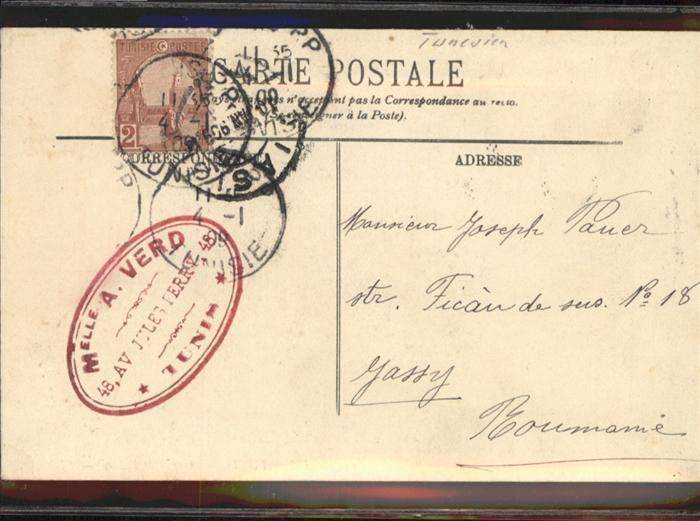 Tunesien
TUNISIE POSTES
2
CARTE POSTALE
pas la Correspondance au recto.
à la Poste).
CORRESPONDANCE
ADRESSE
11 35
4 - 1
09
TUNISIE
Melle A. VERD
48, AV JULES FERRY 48
TUNIS
Monsieur Joseph Pauer
str. Ficău de sus. No 18
Jassy
Roumanie